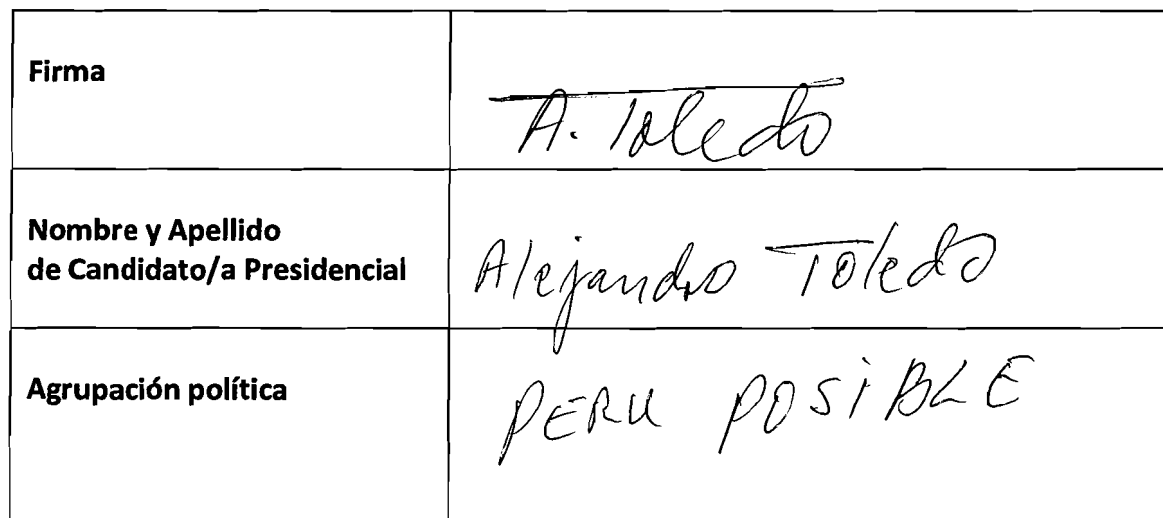 Firma
A. Toledo
Nombre y Apellido
de Candidato/a Presidencial
Alejandro Toledo
Agrupación política
PERU POSiBLE